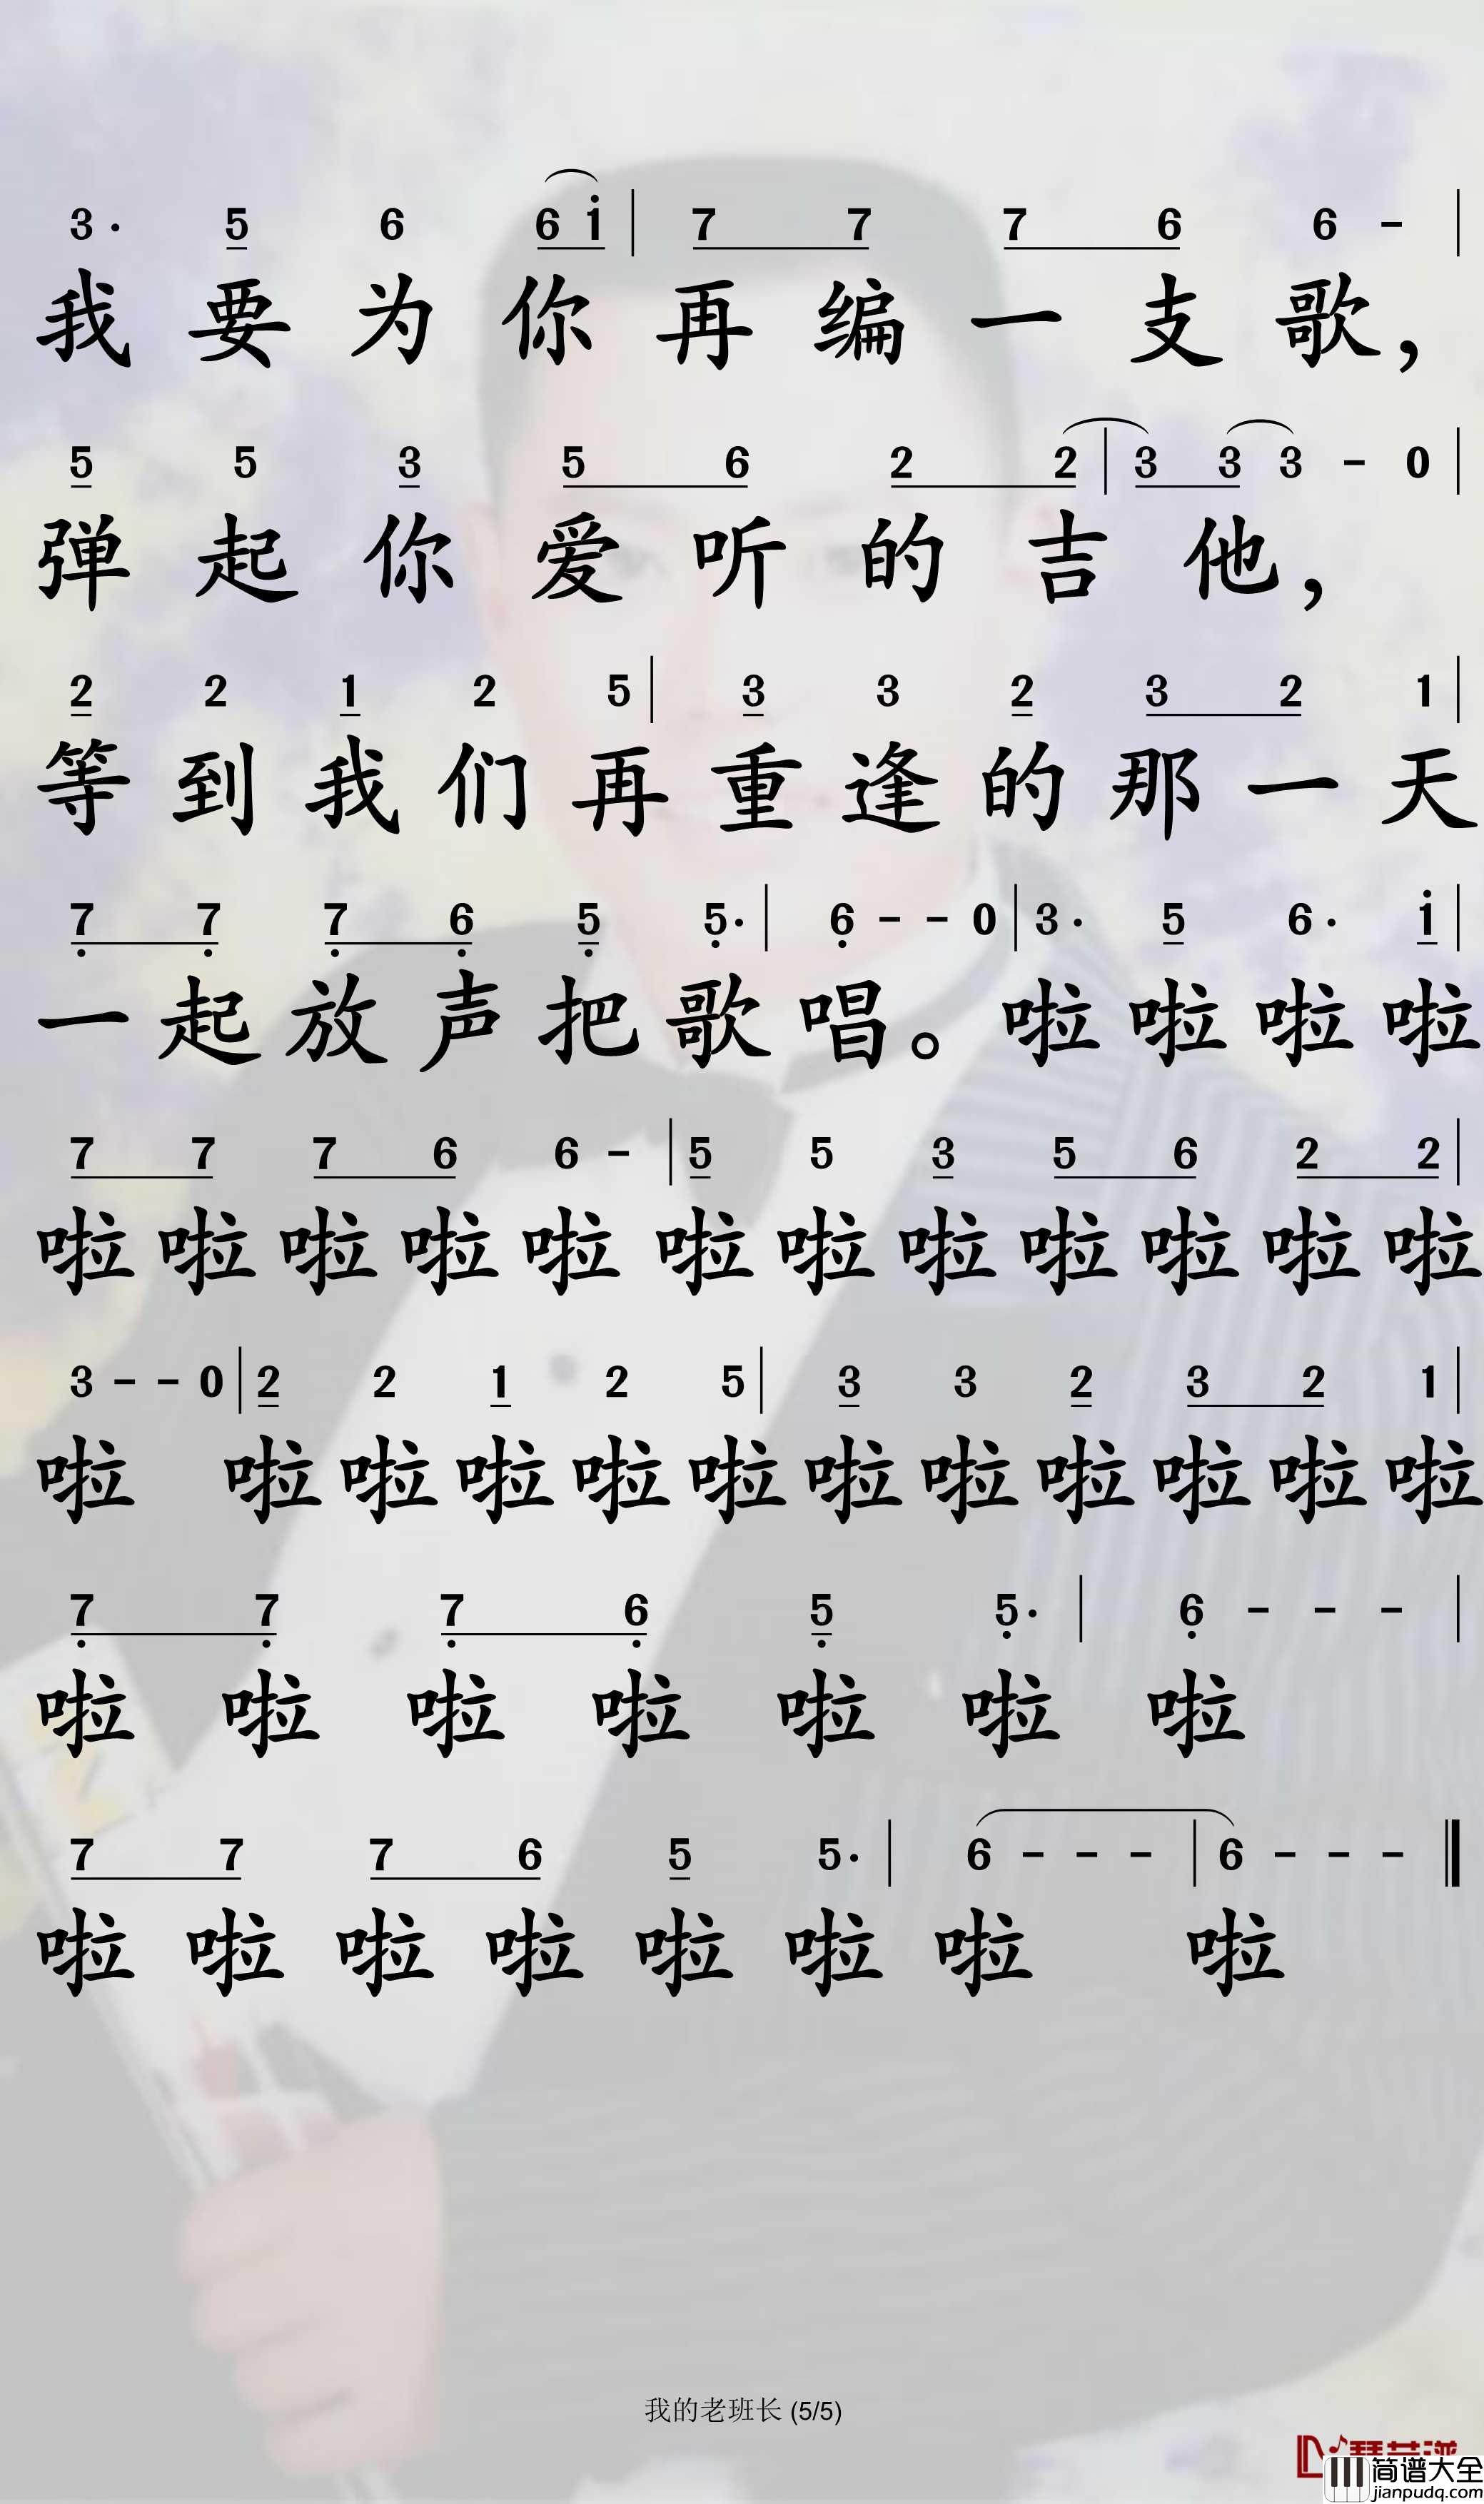 3· 5 6 6 i | 7 7 7 6 6 - |
我要为你再编一支歌，
5 5 3 5 6 2 2 | 3 3 3 - 0 |
弹起你爱听的吉他，
2 2 1 2 5 | 3 3 2 3 2 1 |
等到我们再重逢的那一天
7 7 7 6 5 5· | 6 - - 0 | 3· 5 6· i |
一起放声把歌唱。啦啦啦啦
7 7 7 6 6 - | 5 5 3 5 6 2 2 |
啦啦啦啦啦啦啦啦啦啦啦啦
3 - - 0 | 2 2 1 2 5 | 3 3 2 3 2 1 |
啦 啦啦啦啦啦啦啦啦啦啦啦
7 7 7 6 5 5· | 6 - - - |
啦啦啦啦啦啦啦
7 7 7 6 5 5· | 6 - - - | 6 - - - ‖
啦啦啦啦啦啦啦 啦
我的老班长 (5/5)
简谱大全
jianpudq.com